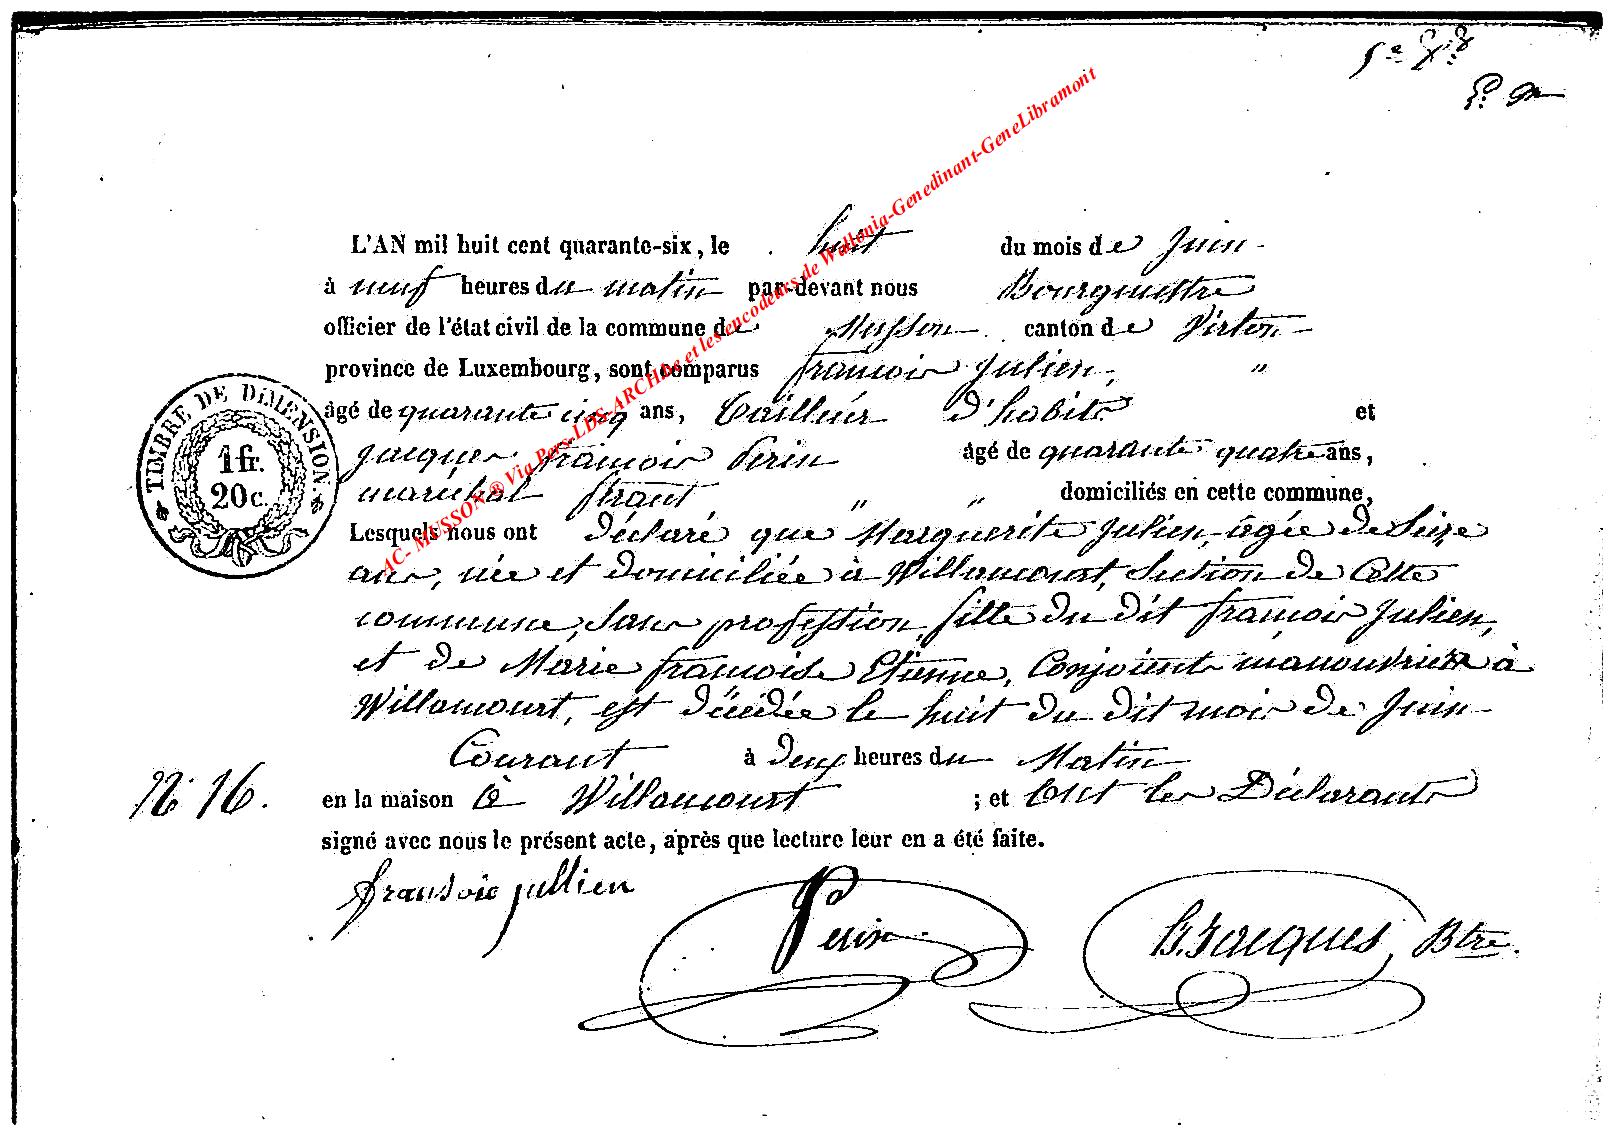 5e
L'AN mil huit cent quarante-six, le huit du mois de Juin
à neuf heures du matin par-devant nous Bourgmestre
officier de l'état civil de la commune de Musson canton de Virton
province de Luxembourg, sont comparus françois Julien, "
âgé de quarante cinq ans, tailleur d'habits et
Jacques françois Perin âgé de quarante quatre ans,
maréchal ferant " " domiciliés en cette commune,
Lesquels nous ont déclaré que Marguerite Julien, agée de Seize
ans, née et domiciliée à Willancourt, Section de Cette
commune, Sans profession, fille du dit françois Julien,
et de Marie françoise Etienne, Conjoints manouvriers à
Willancourt, est décédée le huit du dit mois de Juin
Courant à deux heures du Matin
N° 16. en la maison à Willancourt ; et Ont les Déclarants
signé avec nous le présent acte, après que lecture leur en a été faite.
fransoie jullien Perin B.Jacques, Btre.
TIMBRE DE DIMENSION.
1 fr.
20 c.
AC- MUSSON ® Via Pers-LDS-ARCHIve et les encodeurs de Wallonia-Genedinant-GeneLibramont